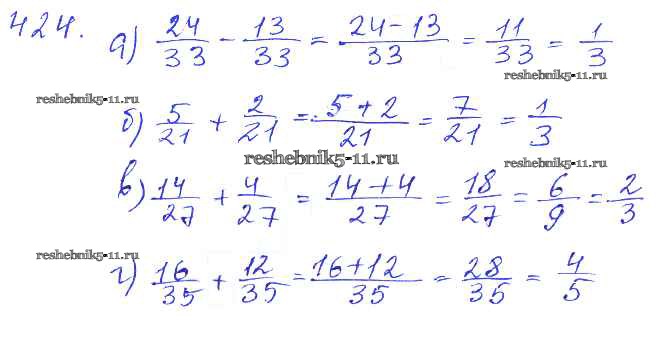 424. а) 24/33 − 13/33 = 24−13/33 = 11/33 = 1/3
reshebnik5-11.ru
reshebnik5-11.ru
б) 5/21 + 2/21 = 5+2/21 = 7/21 = 1/3
reshebnik5-11.ru
reshebnik5-11.ru
в) 14/27 + 4/27 = 14+4/27 = 18/27 = 6/9 = 2/3
reshebnik5-11.ru
г) 16/35 + 12/35 = 16+12/35 = 28/35 = 4/5